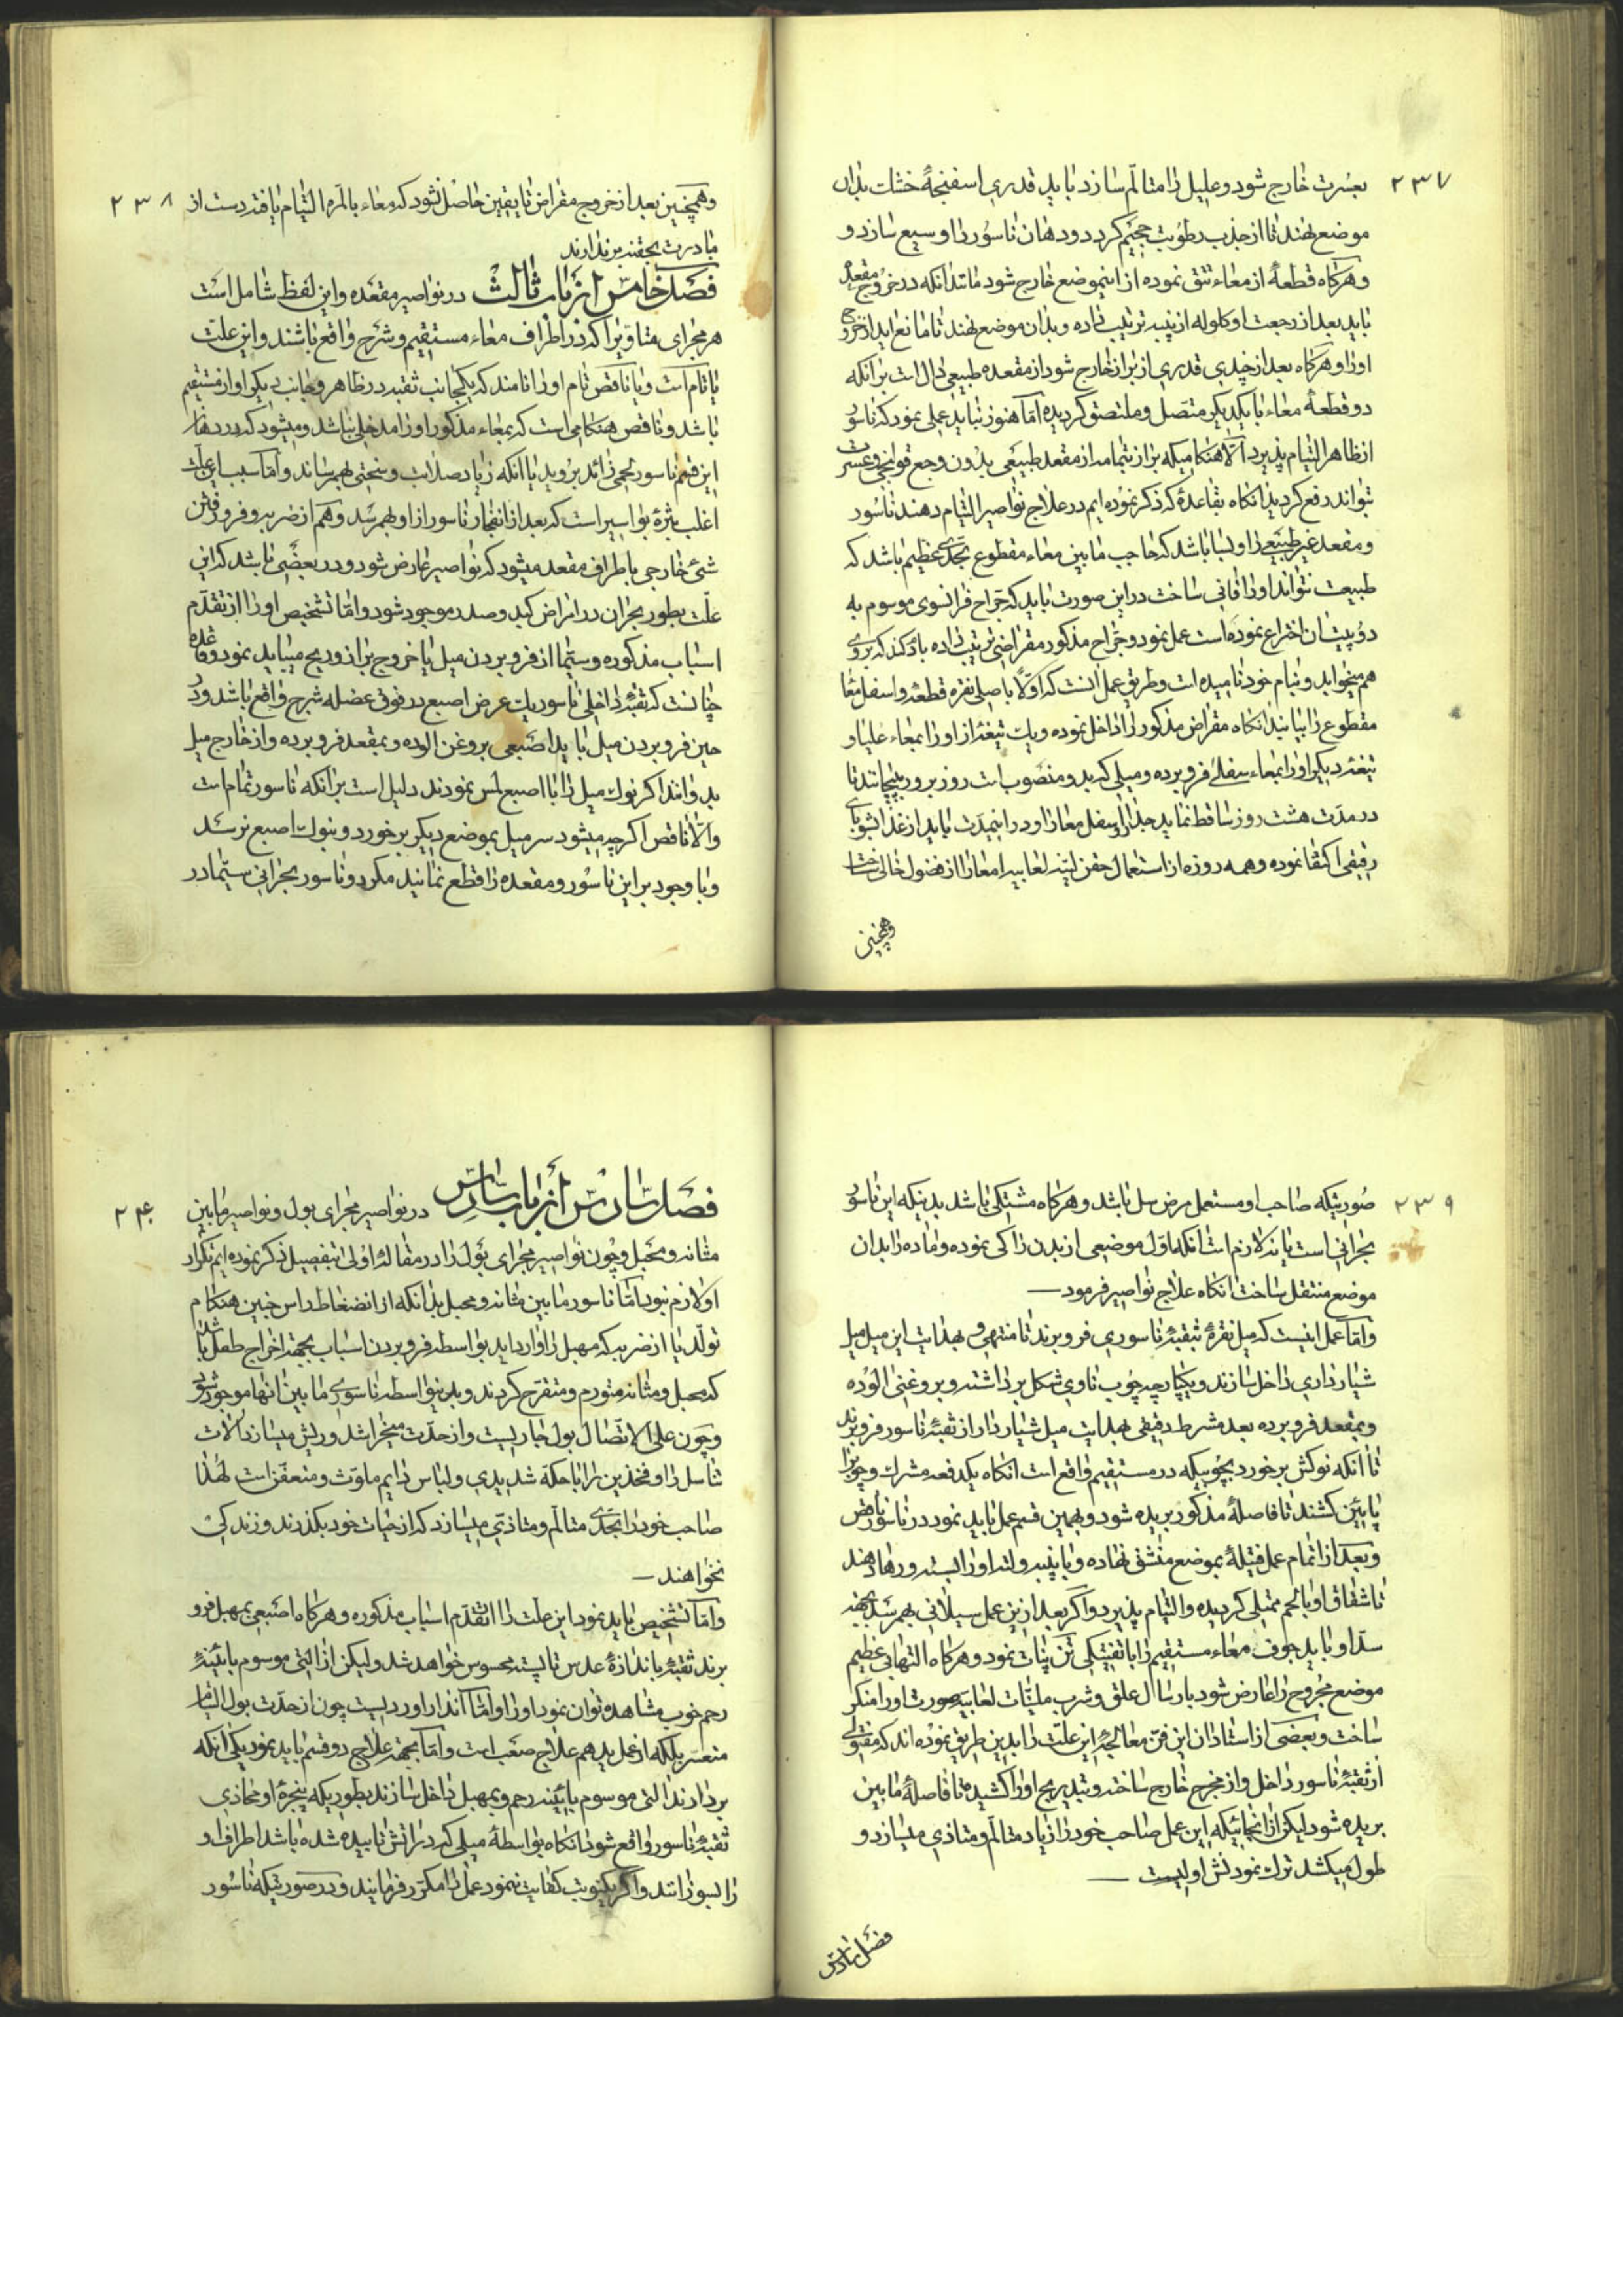 ۲۳۷
بعسرت خارج شود و علیل را متالّم سازد باید قدری اسفنجهٔ خشک بدان
موضع نهند تا از جذب رطوبت حجیم گردد و دهان ناسور را وسیع سازد و
و هرگاه قطعهٔ از معاء نتق نموده از اینموضع خارج شود مانند آنکه در خروج مقعده
باید بعد از رجعت او گلوله از پنبه ترتیب داده و بدان موضع نهند تا مانع اید از خروج
او را و هرگاه بعد از چندی قدری از براز خارج شود از مقعده طبیعی دال است بر آنکه
دو قطعهٔ معاء با یکدیگر متصل و ملتصق گردیده امّا هنوز نباید عملی نمود که ناسور
از ظاهر التیام پذیرد الّا هنگامیکه براز بتمامه از مقعد طبیعی بدون وجع قولنجی و عسرت
تواند رفع گردید انگاه بقاعدهٔ که ذکر نموده ایم در علاج نواصیر التیام دهند ناسور
و مقعد غیر طبیعی را و بسا باشد که حاجب مابین معاء مقطوع بحدّی عظیم باشد که
طبیعت نتواند او را فانی ساخت در این صورت باید که جرّاح فرانسوی موسوم به
دوپیتان اختراع نموده است عمل نمود و جرّاح مذکور مقراضی ترتیب داده که بروی
هم میخوابد و بنام خود نامیده است و طریق عمل آنست که اوّلاً با میل نقره قطعهٔ و اسفل معاء
مقطوع را بیابند انگاه مقراض مذکور را داخل نموده و یک تیغه از او را بمعاء علیا و
تیغهٔ دیگر او را بمعاء سفلی فرو برده و میلی که بدو منصوب است روز بروز بپیچانند تا
در مدّت هشت روز ساقط نماید جدار اسفل معا را و در اینمدّت باید از غذا بشوربای
رقیقی اکتفا نموده و همه روزه از استعمال حقن لیّنه لعابیه امعا را از فضول خالی ساخت
وهمچنین
۲۳۸
وهمچنین بعد از خروج مقراض تا یقین حاصل نشود که معاء بالمرّه التیام یافته دست از
مبادرت بحقنه بر ندارند
فصل خامس از باب ثالث در نواصیر مقعده و این لفظ شامل است
هر مجرای متاوّیرا که در اطراف معاء مستقیم و شرج واقع باشند و این علّت
یا تام است و یا ناقص تام او را نامند که یکجانب ثقبه در ظاهر و جانب دیگر او از مستقیم
باشد و ناقص هنگامی است که بمعاء مذکور او را مدخلی نباشد و میشود که در دهان
این قسم ناسور لحمی زائد بروید یا آنکه زیاد صلابت و سختی بهم رساند و امّا سبب این علّت
اغلب بثرهٔ بواسیر است که بعد از انفجار ناسور از او بهمرسد و هم از ضربه و فرو رفتن
شئ خارجی باطراف مقعد میشود که نواصیر عارض شود و در بعضی باشد که این
علّت بطور بحران در امراض کبد و صدر موجود شود و امّا تشخیص او را از تقدّم
اسباب مذکوره و سیّما از فرو بردن میل یا خروج براز و ریح میباید نمود و قاعده
چنانست که ثقبهٔ داخلی ناسور بیک عرض اصبع در فوق عضله شرج واقع باشد و در
حین فرو بردن میل باید اصبعی بروغن آلوده و بمقعد فرو برده و از خارج میل
بدوانند اگر نوک میل را با اصبع لمس نمودند دلیل است بر آنکه ناسور تمام است
والّا ناقص اگر چه میشود سر میل بموضع دیگر بر خورد و بنوک اصبع نرسد
و با وجود بر این ناسور و مقعده را قطع نمایند مگر در ناسور بحرانی سیّما در
۲۳۹
صورتیکه صاحب او مستعمل مرض سل باشد و هرگاه مشتکی باشد بدینکه این ناسور
بحرانی است یا نه لازم است آنکه اول موضعی از بدن را کی نموده و ماده را بدان
موضع منتقل ساخت انگاه علاج نواصیر فرمود
و امّا عمل اینست که میل نقرهٔ بثقبهٔ ناسوری فرو برند تا منتهی و بهدایت این میل میل
شیارداری داخل سازند و یکپارچه چوب ناوی شکل بر داشته و بروغنی آلوده
و بمقعد فرو برده بعد مشرط دقیقی بهدایت میل شیاردار از ثقبهٔ ناسور فرو برند
تا آنکه نوکش بر خورد بچوبیکه در مستقیم واقع است انگاه یکدفعه مشرط و چوبرا
پایین کشند تا فاصلهٔ مذکور بریده شود و بهمین قسم عمل باید نمود در ناسور ناقص
و بعد از اتمام عمل فتیلهٔ بموضع منشق نهاده و با پنبه و لته او را بسته و رها دهند
تا شقاق او با لحم ممتلی گردیده و التیام پذیرد و اگر بعد از این عمل سیلانی بهمرسد بجهة
سدّ او باید جوف معاء مستقیم را با تفتیکی تن پنات نمود و هرگاه التهابی عظیم
موضع مجروح را عارض شود بارسال علق و شرب ملیّنات لعابیه صورت او را منکر
ساخت و بعضی از استادان این فن معالجهٔ این علّت را بدین طریق نموده اند که مفتولی
از ثقبهٔ ناسور داخل و از مخرج خارج ساخته و بتدریج او را کشیده تا فاصلهٔ مابین
بریده شود لیکن از انجائیکه این عمل صاحب خود را زیاد متالّم و متاذی میسازد و
طول میکشد ترک نمودنش اولیست
فصل سادس
۲۴۰
فصل سادس از باب سادس در نواصیر مجرای بول و نواصیر مابین
مثانه و مهبل و چون نواصیر مجرای بول را در مقالهٔ اولی بتفصیل ذکر نموده ایم تکرار
او لازم نبود امّا ناسور مابین مثانه و مهبل بدانکه از انضغاط راس جنین هنگام
تولّد یا از ضربه که مهبل را وارد اید بواسطه فرو بردن اسباب بجهة اخراج طفل یا شد
که مهبل و مثانه متورم و متقرح گردند و بدینواسطه ناسوری مابین آنها موجود شود
و چون علی الاتّصال بول جاریست و از حدّت میخراشد و ریش میسازد آلات
تناسل را و فخذین را با حکهٔ شدیدی و لباس دایم ملوّث و متعفّن است لهٰذا
صاحب خود را بحدّی متالّم و متاذّی میسازد که از حیات خود بگذرند و زندگی
نخواهند
و امّا تشخیص باید نمود این علّت را از تقدّم اسباب مذکوره و هرگاه اصبعی بمهبل فرو
برند ثقبهٔ باندازهٔ عدس تا پسته محسوس خواهد شد و لیکن از التی موسوم بآئینهٔ
رحم خوب مشاهده توان نمود او را و امّا انذار او ردیست چون از حدّت بول التیام
متعسّر بلکه از عمل ید هم علاج صعب است و امّا بجهة علاج دو قسم باید نمود یکی آنکه
بردارند التی موسوم بآئینه رحم و بمهبل داخل سازند بطوریکه پنجرهٔ او محاذی
ثقبهٔ ناسور واقع شود انگاه بواسطهٔ میلی که در اتش تابیده شده باشد اطراف او
را بسوزانند و اگر یکنوبت کفایت ننمود عمل را مکرّر فرمایند و در صورتیکه ناسور